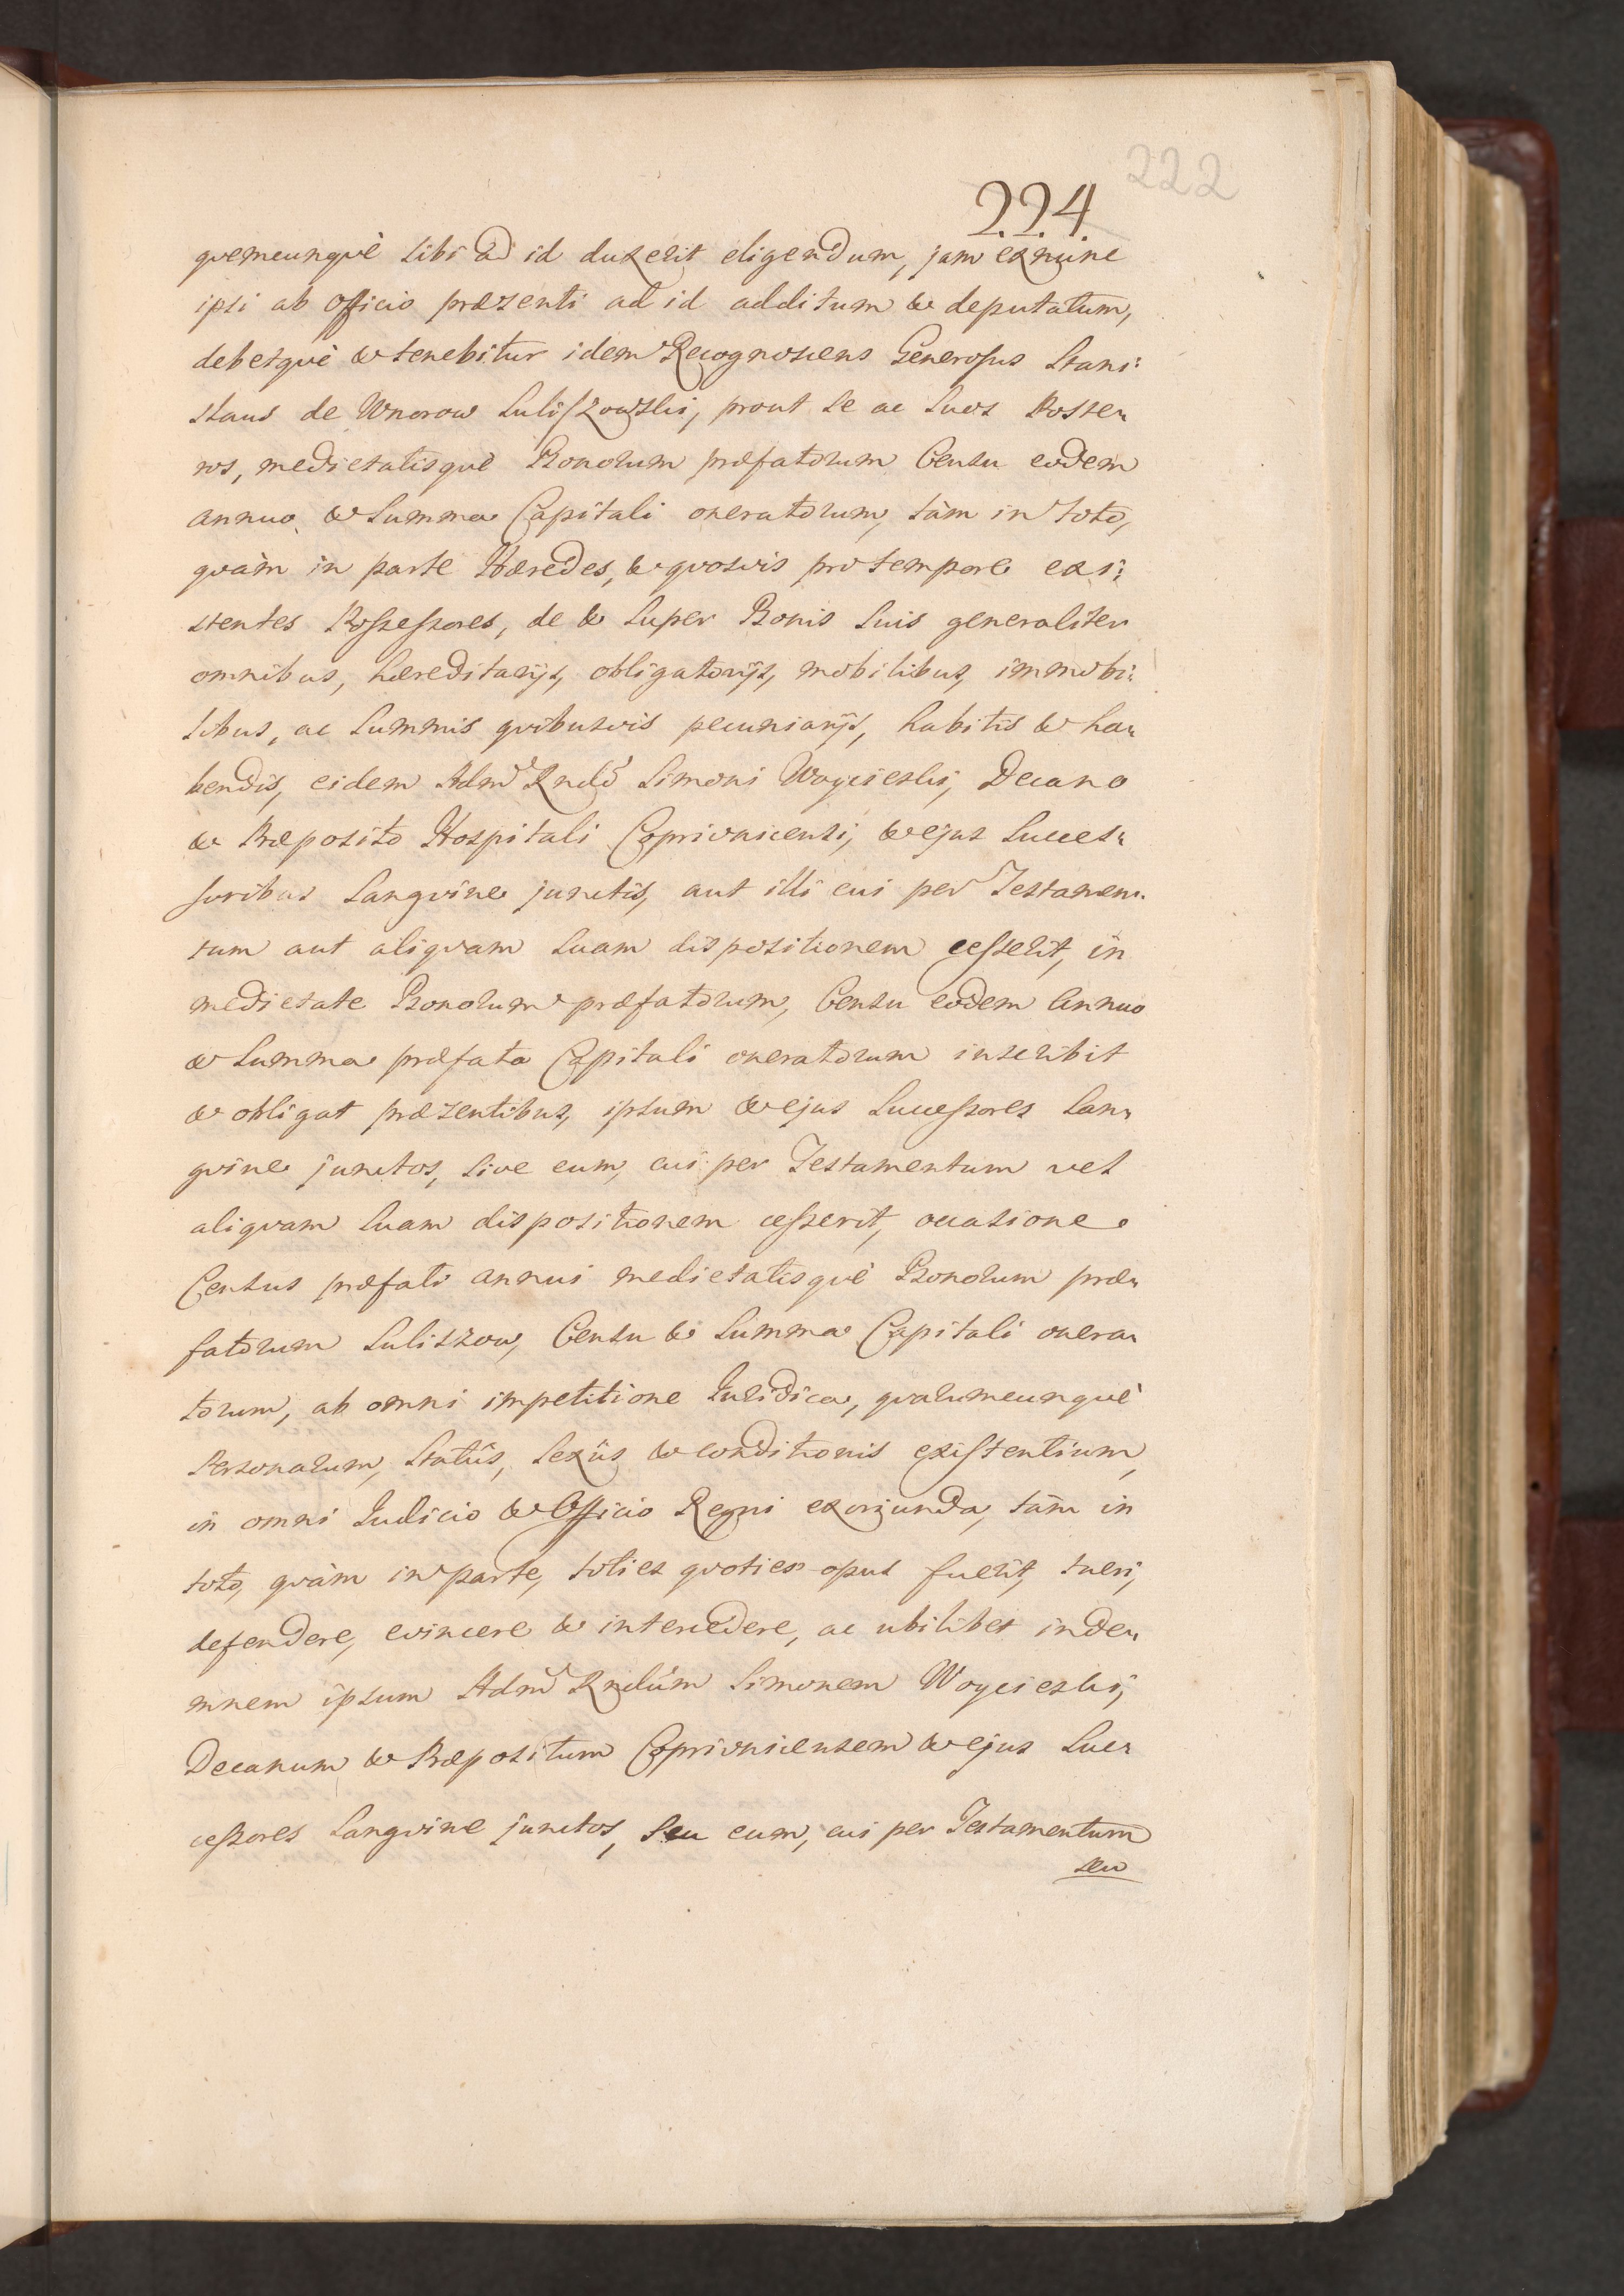 222
224.
quemcunquè sibi ad id duxerit eligendum, jam exnunc
ipsi ab Officio præsenti ad id additum & deputatum,
debetquè & tenebitur idem Recognoscens Generosus Stani:
slaus de Wnorow Suliszowski, prout se ac suos Poste„
ros, medietatisquè Bonorum præfatorum Censu eodem
annuo & Summa Capitali oneratorum, tàm in toto,
quàm in parte Hæredes, & quosvis pro tempore exi:
stentes Possessores, de & super Bonis suis generaliter
omnibus, hæreditarijs, obligatorijs, mobilibus, immobi:
libus, ac Summis quibusvis pecuniarijs, habitis & ha„
bendis, eidem Admȏ Rndȏ Simoni Woycieski, Decano
& Præposito Hospitali Coprivnicensi, & ejus Succes„
soribus Sanguine junctis, aut illi cui per Testamen„
tum aut aliquam suam dispositionem cesserit, in
medietate Bonorum præfatorum, Censu eodem Annuo
& Summa præfata Capitali oneratorum inscribit
& obligat præsentibus, ipsum & ejus Successores San„
guine junctos, sive eum, cui per Testamentum vel
aliquam suam dispositionem cesserit, occasione
Census præfati annui medietatisquè Bonorum præ„
fatorum Suliszow, Censu & Summa Capitali onera„
torum, ab omni impetitione Juridica, quarumcunquè
Personarum, Statûs, Sexûs & conditionis existentium,
in omni Judicio & Officio Regni exorjunda, tàm in
toto, quàm in parte, toties quoties opus fuerit, tueri,
defendere, evincere & intercedere, ac ubilibet inde„
mnem ipsum Admȏ Rndûm Simonem Woycieski,
Decanum & Præpositum Coprivnicensem & ejus Suc„
cessores Sanguine junctos, seu eum, cui per Testamentum
seu